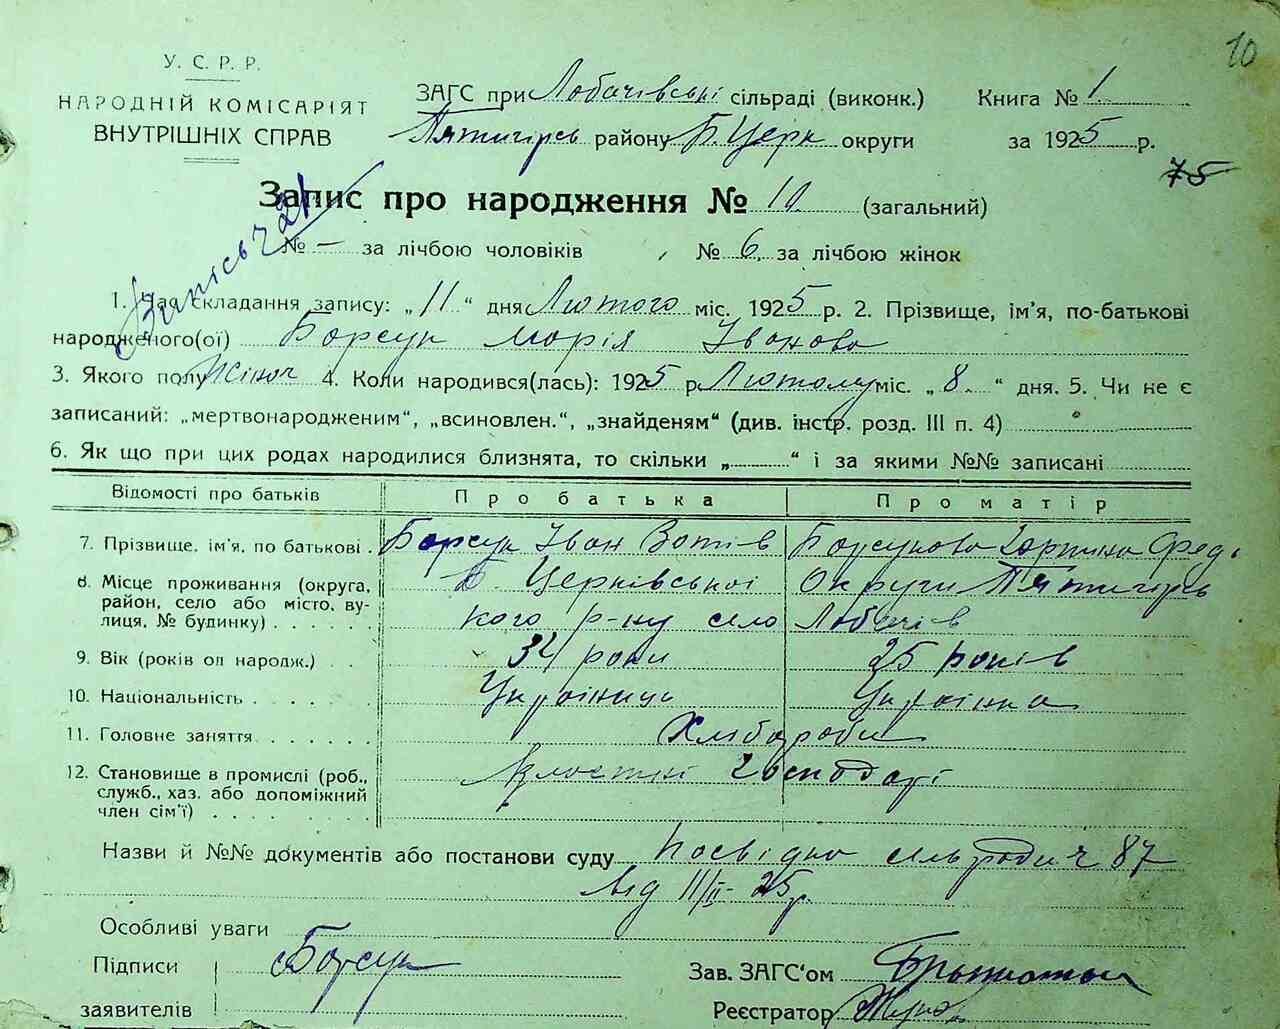 10
У. С. Р. Р.
НАРОДНІЙ КОМІСАРІЯТ
ВНУТРІШНІХ СПРАВ
ЗАГС при Лобачівські сільраді (виконк.) Книга № 1
Пятигірсь району Б. Церк округи за 1925 р.
75
Запис про народження № 10 (загальний)
№ — за лічбою чоловіків № 6 за лічбою жінок
1. Час складання запису: „11“ дня Лютого міс. 1925 р. 2. Прізвище, ім'я, по-батькові
народженого(ої) Борсук Марія Іванова
3. Якого полу Жіноч 4. Коли народився(лась): 1925 р. Лютому міс. „8“ дня. 5. Чи не є
записаний: „мертвонародженим“, „всиновлен.“, „знайденям“ (див. інстр. розд. III п. 4)
6. Як що при цих родах народилися близнята, то скільки „ “ і за якими №№ записані
Відомості про батьків Про батька Про матір
7. Прізвище, ім'я, по батькові Борсук Іван Борсукова Фед.
8. Місце проживання (округа, Б. Церківської Округи Пятигірсь
район, село або місто, ву- кого р-ну село Лобачів
лиця, № будинку)
9. Вік (років од народж.) 34 роки 25 років
10. Національність Українець Українка
11. Головне заняття Хлібороби
12. Становище в промислі (роб., господарі
служб., хаз. або допоміжний
член сім'ї)
Назви й №№ документів або постанови суду Посвідка сельради ч 87
від 11/II-25р.
Особливі уваги
Підписи Борсук Зав. ЗАГС'ом
заявителів Реєстратор